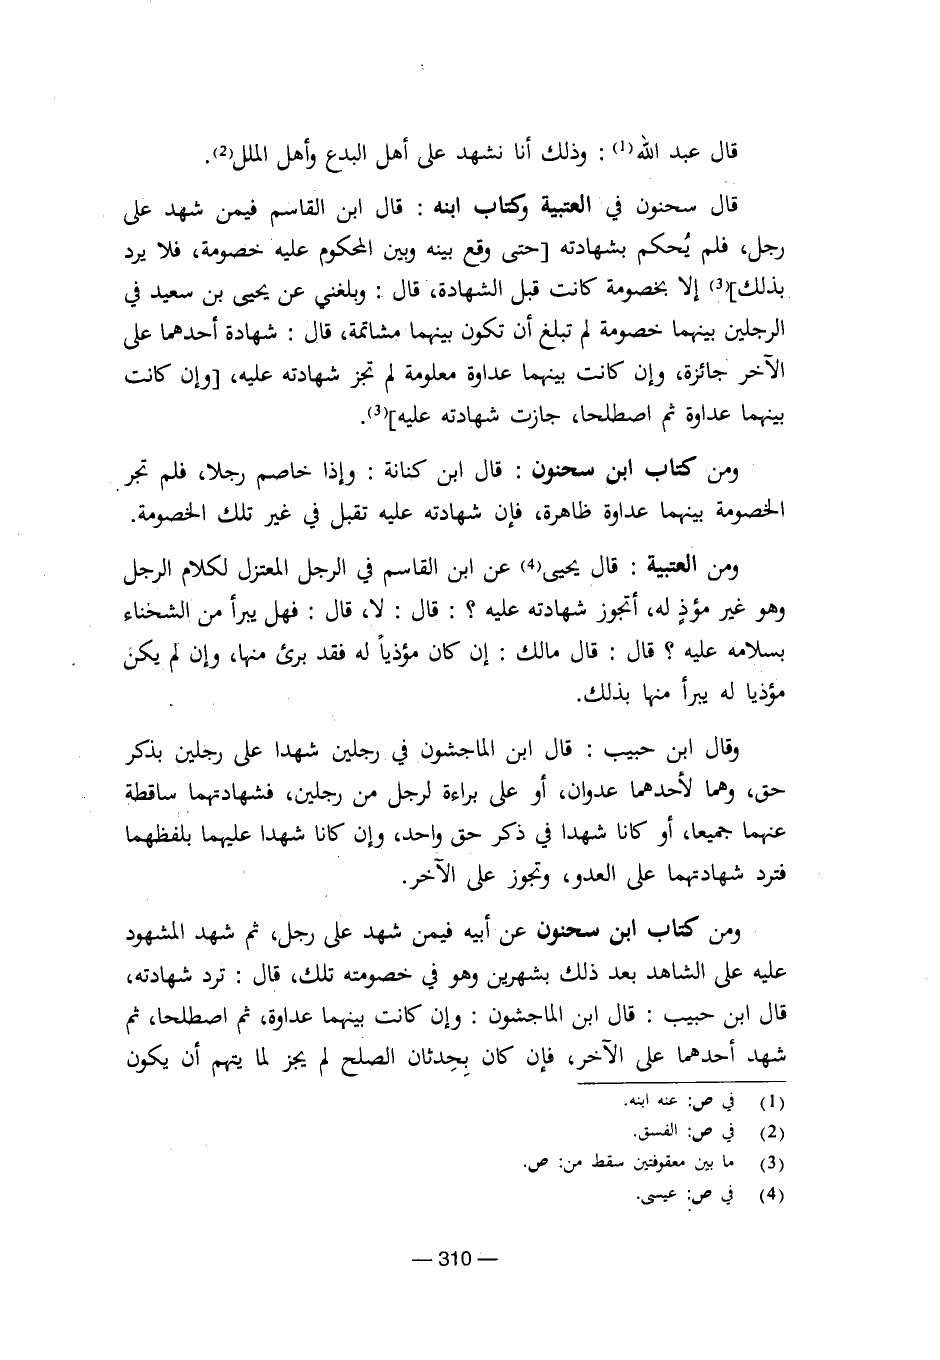 قال عبد الله(1) : وذلك أنا نشهد على أهل البدع وأهل الملل(2).
قال سحنون في العتبية وكتاب ابنه : قال ابن القاسم فيمن شهد على
رجل، فلم يُحكم بشهادته [حتى وقع بينه وبين المحكوم عليه خصومة، فلا يرد
بذلك](3) إلا بخصومة كانت قبل الشهادة، قال : وبلغني عن يحيى بن سعيد في
الرجلين بينهما خصومة لم تبلغ أن تكون بينهما مشاتمة، قال : شهادة أحدهما على
الآخر جائزة، وإن كانت بينهما عداوة معلومة لم تجز شهادته عليه، [وإن كانت
بينهما عداوة ثم اصطلحا، جازت شهادته عليه](3).
ومن كتاب ابن سحنون : قال ابن كنانة : وإذا خاصم رجلا، فلم تجر
الخصومة بينهما عداوة ظاهرة، فإن شهادته عليه تقبل في غير تلك الخصومة.
ومن العتبية : قال يحيى(4) عن ابن القاسم في الرجل المعتزل لكلام الرجل
وهو غير مؤذٍ له، أتجوز شهادته عليه ؟ : قال : لا، قال : فهل يبرأ من الشخناء
بسلامه عليه ؟ قال : قال مالك : إن كان مؤذياً له فقد برئ منها، وإن لم يكن
مؤذيا له يبرأ منها بذلك.
وقال ابن حبيب : قال ابن الماجشون في رجلين شهدا على رجلين بذكر
حق، وهما لأحدهما عدوان، أو على براءة لرجل من رجلين، فشهادتهما ساقطة
عنهما جميعا، أو كانا شهدا في ذكر حق واحد، وإن كانا شهدا عليهما بلفظهما
فترد شهادتهما على العدو، وتجوز على الآخر.
ومن كتاب ابن سحنون عن أبيه فيمن شهد على رجل، ثم شهد المشهود
عليه على الشاهد بعد ذلك بشهرين وهو في خصومته تلك، قال : ترد شهادته،
قال ابن حبيب : قال ابن الماجشون : وإن كانت بينهما عداوة، ثم اصطلحا، ثم
شهد أحدهما على الآخر، فإن كان بِحِدثان الصلح لم يجز لما يتهم أن يكون
(1) في ص: عنه ابنه.
(2) في ص: الفسق.
(3) ما بين معقوفتين سقط من: ص.
(4) في ص: عيسى.
— 310 —